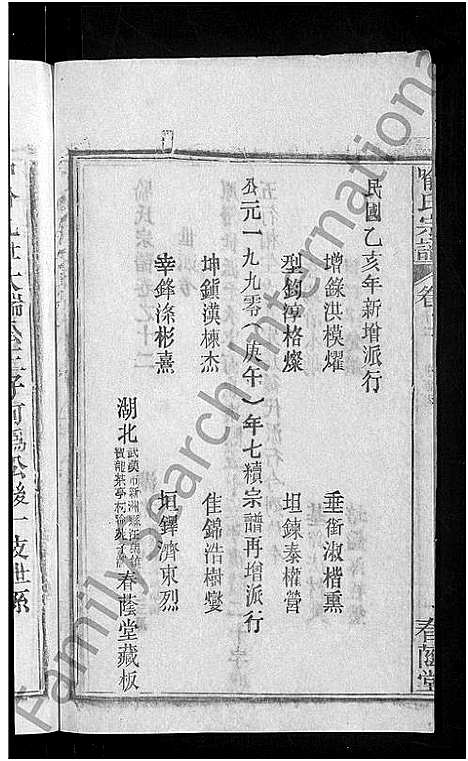 喻氏宗譜
卷
春蔭堂
民國乙亥年新增派行
增錄洪模燿 垂銜淑楷熏
型鈞淳格燦 坦鍊泰權營
公元一九九零(庚午)年七續宗譜再增派行
坤鎮漢棟杰 佳錦浩樹燮
幸鋒滌彬熹 垣鐸濟東烈
湖北 武漢市新洲縣 春蔭堂藏板
FamilySearch International